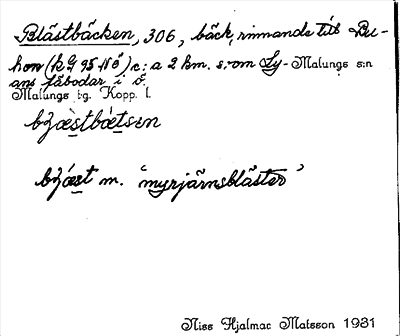 Blästbäcken, 306, bäck, rinnande till Bu-
hon (kG 95 Nö) c:a 2 km. s. om Ly- Malungs s:n
ans fäbodar i ö.
Malungs t:g. Kopp. l.
bʒæstbætsən
bʒæst m. 'myrjärnsbläster'
Niss Hjalmar Matsson 1931